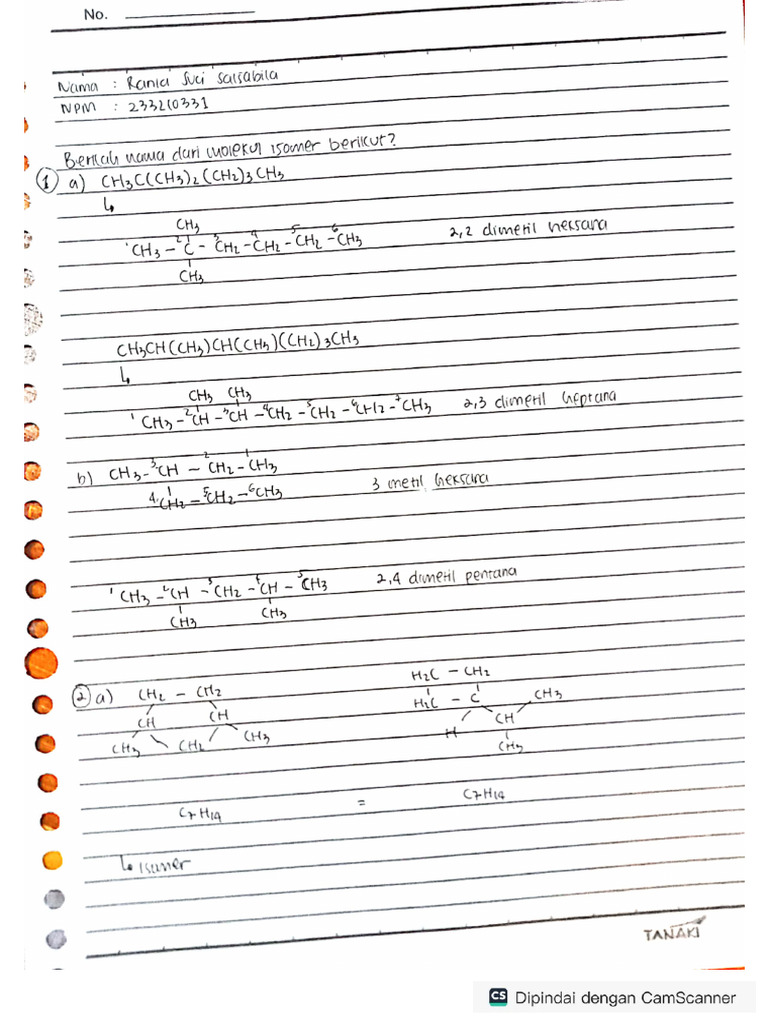 No.
Nama : Rania Suci Salsabila
NPM : 233210331
Berilah nama dari molekul isomer berikut?
1 a) CH3C(CH3)2(CH2)3CH3
↳
CH3
1CH3 - 2C - 3CH2 - 4CH2 - 5CH2 - 6CH3 2,2 dimetil heksana
CH3
CH3CH(CH3)CH(CH3)(CH2)3CH3
↳
CH3 CH3
1CH3 - 2CH - 3CH - 4CH2 - 5CH2 - 6CH2 - 7CH3 2,3 dimetil heptana
b) CH3 - 3CH - 2CH2 - 1CH3
4CH2 - 5CH2 - 6CH3 3 metil heksana
1CH3 - 2CH - 3CH2 - 4CH - 5CH3 2,4 dimetil pentana
CH3 CH3
2 a) CH2 - CH2 H2C - CH2
CH CH H2C - C CH3
CH3 CH2 CH3 H CH
CH3
C7H14 = C7H14
↳ isomer
TANAKI
CS Dipindai dengan CamScanner